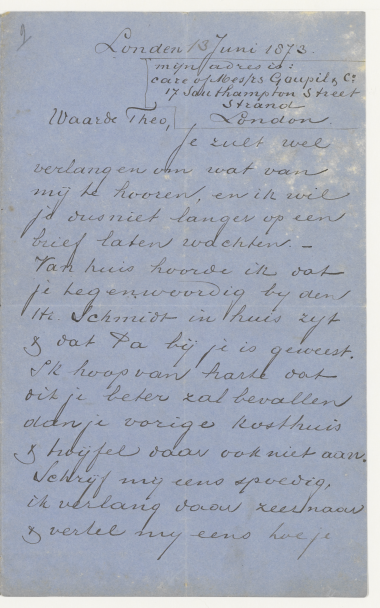 2
Londen 13 Juni 1873.
mijn adres is:
care of Messrs Goupil & Co
17 Southampton Street
Strand
London.
Waarde Theo,
Je zult wel
verlangen om wat van
mij te hooren, en ik wil
je dus niet langer op een
brief laten wachten. –
Van huis hoorde ik dat
je tegenwoordig bij den
Hr. Schmidt in huis zijt
& dat Pa bij je is geweest.
Ik hoop van harte dat
dit je beter zal bevallen
dan je vorige kosthuis
& twijfel daar ook niet aan.
Schrijf mij eens spoedig,
ik verlang daar zeer naar
& vertel mij eens hoe je